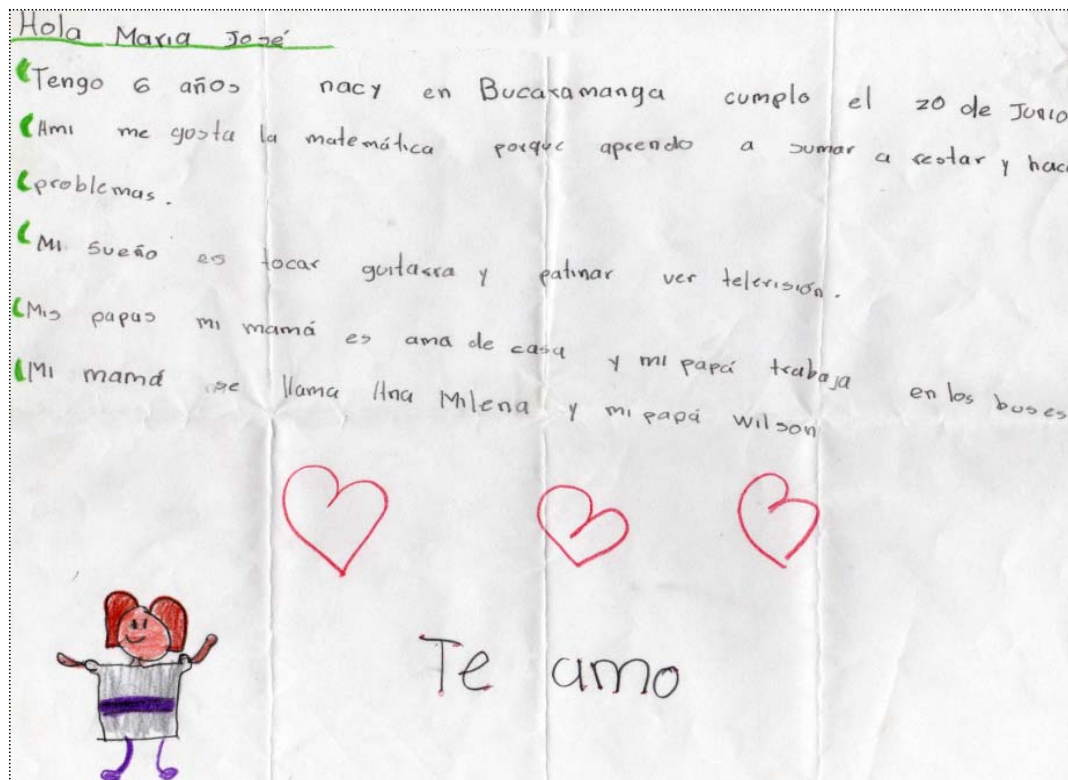 Hola Maria José
Tengo 6 años nacy en Bucaramanga cumplo el 20 de Junio
Ami me gosta la matemática porque aprendo a sumar a restar y hace
problemas.
Mi sueño es tocar guitarra y patinar ver televisión.
Mis papas mi mamá es ama de casa y mi papá trabaja en los buses
Mi mamá se llama Ana Milena y mi papá wilson
Te amo